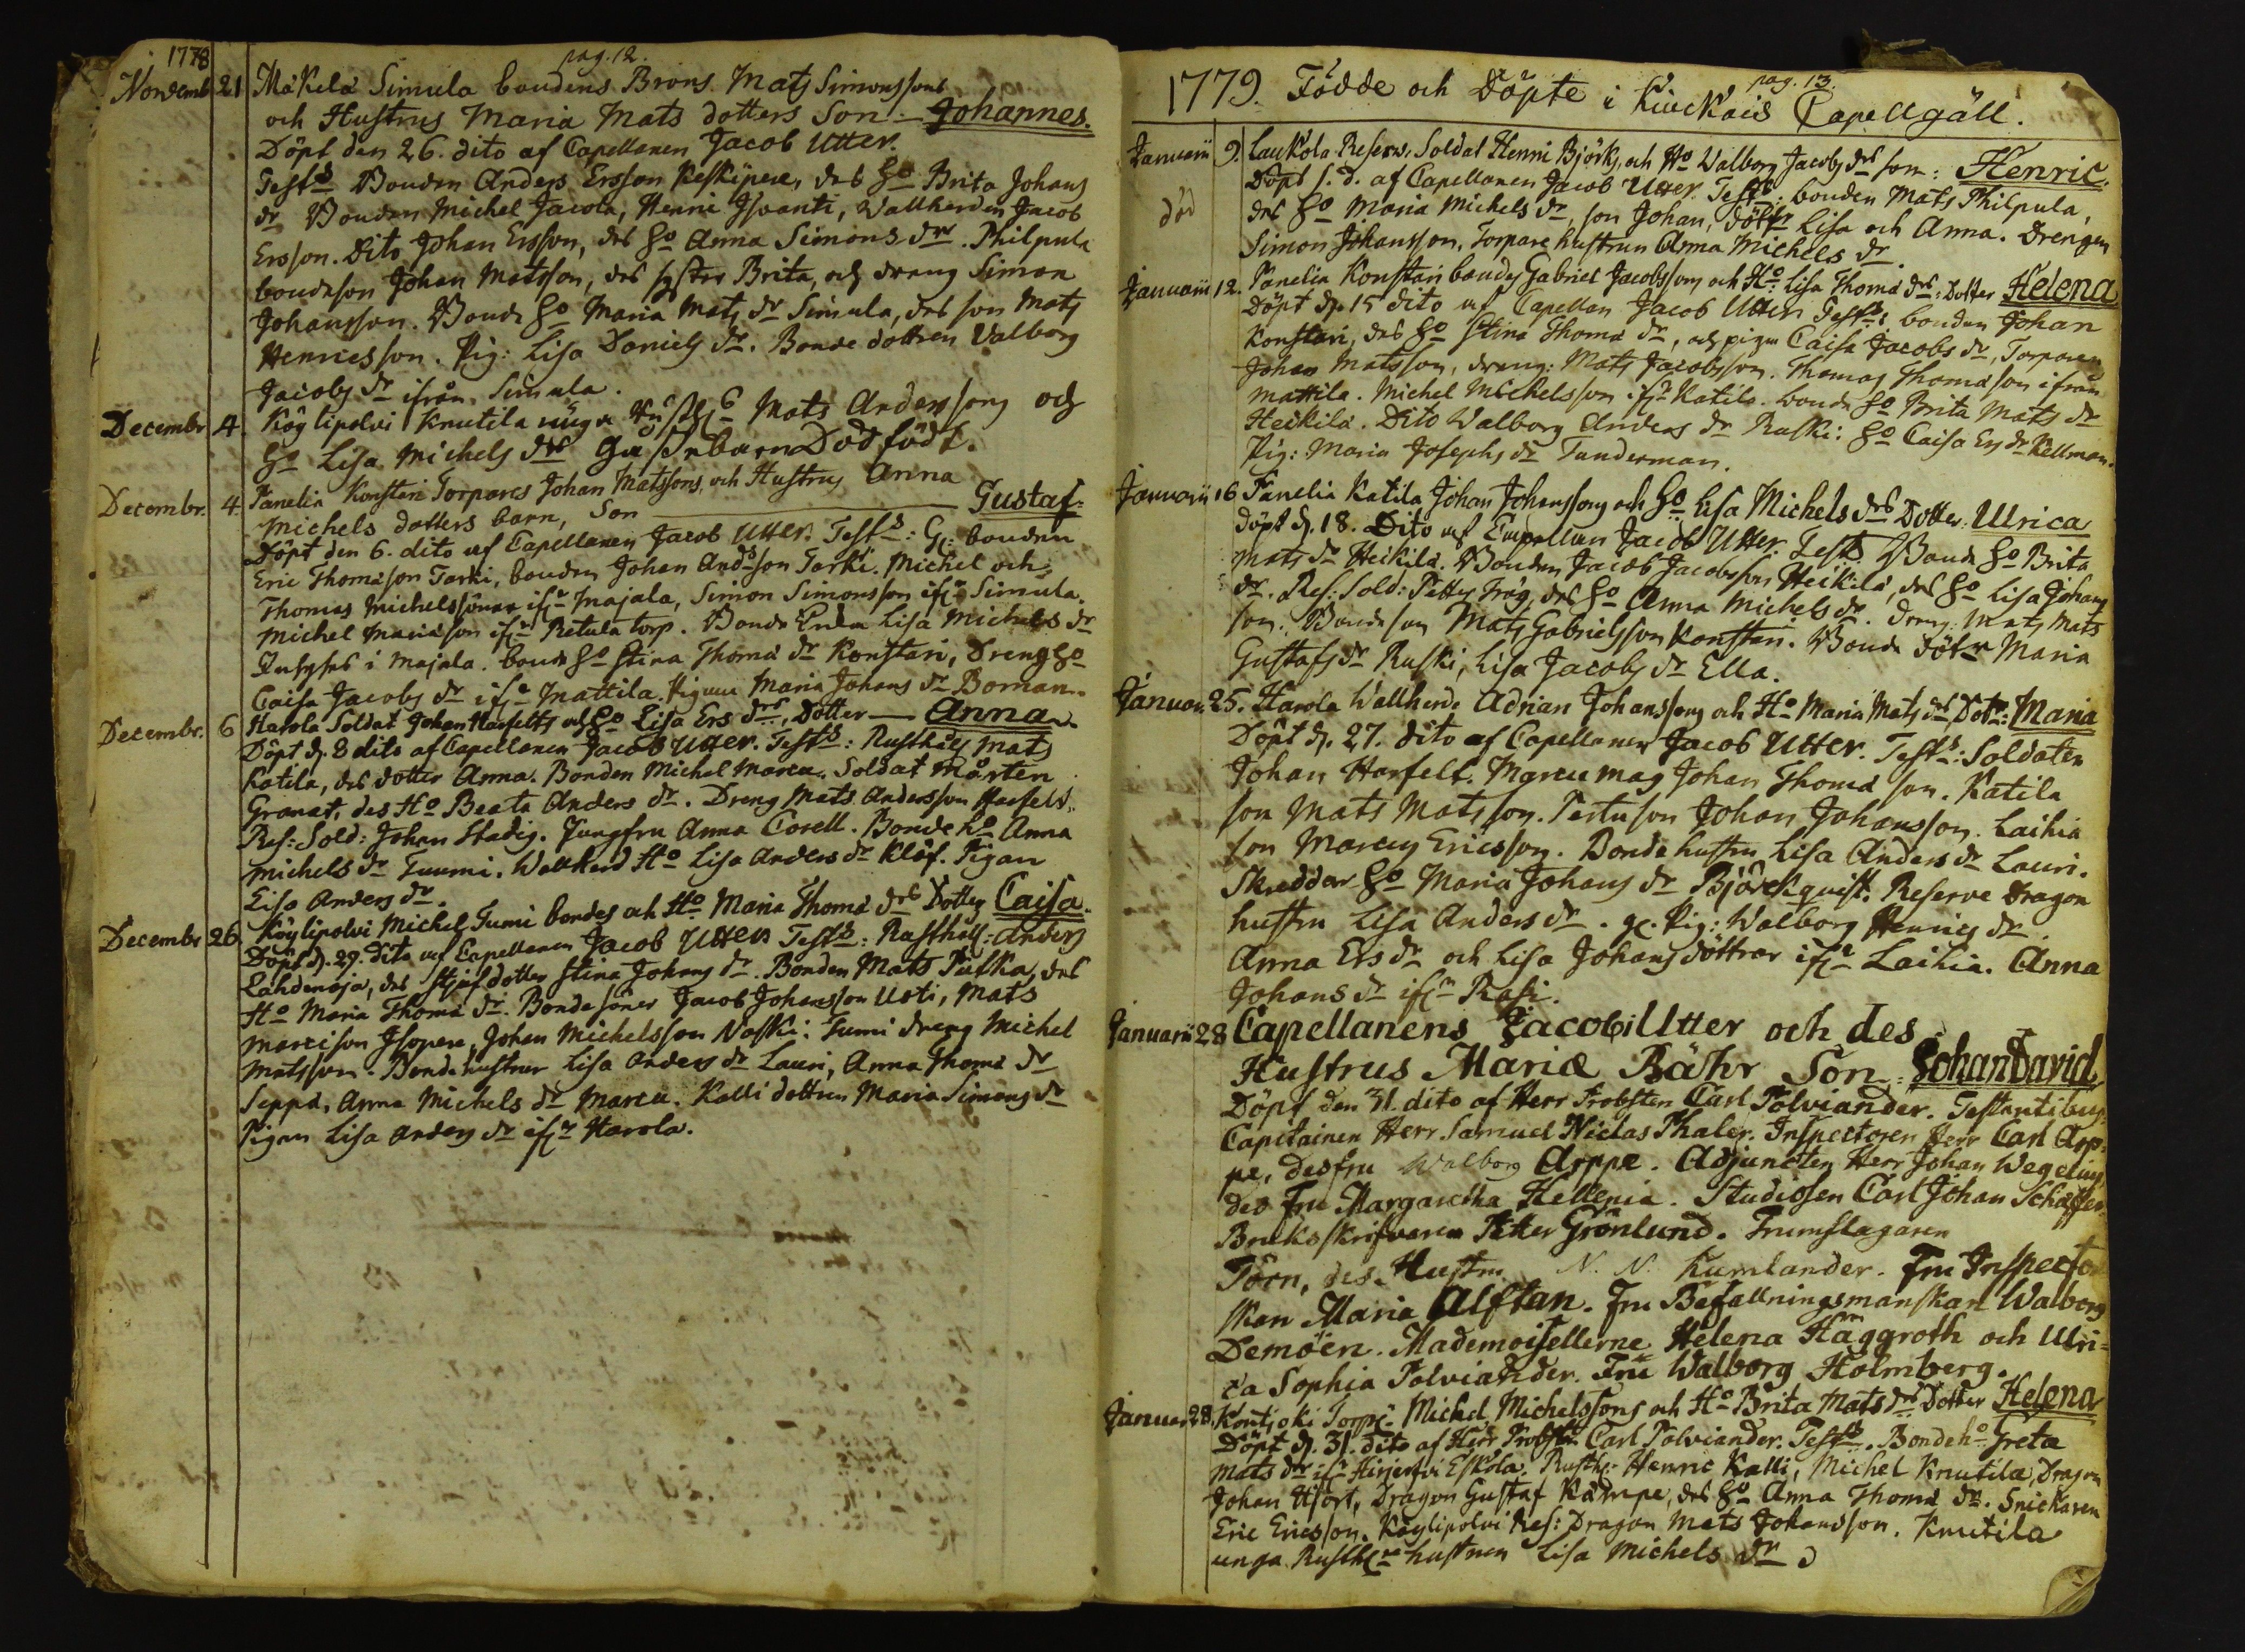 1778 pag. 12.
Novemb 21 Mäkelä Simula bondens Brors Mats Simonssons
och Hustrus Maria Mats dotters Son. Johannes.
Döpt den 26. dito af Capellanen Jacob Utter.
Test:s Bonden Anders Ersson Keskipere, des ho Brita Johans
dr Bonden Michel Jacola, Henric Isvanti, Wallherden Jacob
Ersson. Dito Johan Ersson, des ho Anna Simons dr. Philpula
bondeson Johan Matsson, des syster Brita, och dreng Simon
Johansson. Bonde ho Maria Mats dr Simula, des son Mats
Henricsson. Pig: Lisa Daniels dr. Bonde dottren Valborg
Jacobs dr ifrån Simula.
Decembr 4. Köylipolvi Knutila unga Mats Anderssons och
ho Lisa Michels drs Gåsse barn Dödfödt.
Decembr. 4. Panelia Konstari Torpares Johan Matssons, och Hustrus Anna
Michels dotters barn, Son — Gustaf.
Döpt den 6. dito af Capellanen Jacob Utter. Test:s: bonden
Eric Thomäson Tarki, bonden Johan Andsson Tarki. Michel och
Thomas Michelssöner ifr: Majala, Simon Simonsson ifr: Simula.
Michel Mariäson ifr: Retula torp. Bonde Enkan Lisa Michels dr
i Majala. bonde ho Stina Thomä dr Konstari, Dreng ho
Caisa Jacobs dr ifr: Mattila. Pigan Maria Johans dr Boman.
Decembr. 6 Harola Soldat Johan Harfelts och ho Lisa Ers drs, Dotter — Anna.
Döpt d. 8 dito af Capellanen Jacob Utter. Test:s: Rusthåll Mats
Katila, des dotter Anna. Bonden Michel Marcu. Soldat Mårten
Granat, des Ho Beata Anders dr. Dreng Mats Andersson Harfelt.
Res: Sold: Johan Stadig. Jungfru Anna Corell. Bonde ho Anna
Michels dr Tuumi. Wallherd Ho Lisa Anders dr Klöf. Pigan
Lisa Anders dr.
Decembr 26. Köylipolvi Michel Tumi bondes och Ho Maria Thomä drs Dotter Caisa.
Döpt d. 27. dito af Capellanen Jacob Utter Test:s: Rusthåll: Anders
Lahdenoja, des stjuf dotter Stina Johans dr. Bonden Mats Puska, des
Ho Maria Thomä dr. Bondesöner Jacob Johansson Uoti, Mats
Marcison Isopere, Johan Michelsson Naski. Tumi dreng Michel
Matsson. Bondehustrur Lisa Anders dr Lauri, Anna Thomä dr
Seppä, Anna Michels dr Marcu. Kalli dottren Maria Simons dr
Pigan Lisa Anders dr ifr: Harola.
pag. 13.
1779. Födde och Döpte i Kiuckais Capellgäll.
Januarii 9. Laukola Reserv. Soldat Henric Björks, och Ho Walborg Jacobs drs son: Henric.
död
Döpt s. d. af Capellanen Jacob Utter. Test:s: bonden Mats Philpula,
des ho Maria Michels dr, son Johan, döttr Lisa och Anna. Drengen
Simon Johansson, Torpare hustrun Anna Michels dr
Januarii 12. Panelia Konstari bondes Gabriel Jacobssons och Ho Lisa Thomä drs: Dotter Helena
Döpt d. 15 dito af Capellan Jacob Utter Test:s: bonden Johan
Konstari, des ho Stina Thomä dr, och pigan Caisa Jacobs dr, Torparen
Johan Matsson, dreng: Mats Jacobsson. Thomas Thomäson ifrån
Mattila. Michel Michelsson ifr: Katila. bonde ho Brita Mats dr
Heikilä. Dito Walborg Anders dr Ruski: ho Caisa Ers dr Kellman.
Pig: Maria Josephs dr Tunderman.
Januarii 16 Panelia Katila Johan Johanssons och ho Lisa Michels drs Dotter: Ulrica
Döpt d. 18. Dito af Capellan Jacob Utter. Test:s Bonde ho Brita
Mats dr Heikilä. Bonden Jacob Jacobsson Heikilä, des ho Lisa Johans
dr. Res: Sold: Petter Trög, des ho Anna Michels dr. Dreng: Mats Mats
son. Bondeson Mats Gabrielsson Konstari. Bonde dötr Maria
Gustafs dr Ruski, Lisa Jacobs dr Ella.
Januar. 25. Harola Wallherde Adrian Johanssons och Ho Maria Mats drs Dotr: Maria
Döpt d. 27. dito af Capellanen Jacob Utter. Test:s: Soldaten
Johan Harfelt. Marcu mag Johan Thomä son. Katila
son Mats Matsson. Pertu son Johan Johansson. Laihia
son Marcus Ericsson. Bonde hustru Lisa Anders dr Lauri.
Skreddar ho Maria Johans dr Björckqvist. Reserve Dragon
hustru Lisa Anders dr. Pig: Walborg Henrics dr.
Anna Ers dr och Lisa Johans döttrar ifr: Laihia. Anna
Johans dr ifr: Rasi.
Januarii 28 Capellanens Jacobi Utter och des
Hustrus Mariæ Bähr Son: Johan David
Döpt den 31. dito af Herr Probsten Carl Polviander. Testantibus:
Capitainen Herr Samuel Niclas Thaler. Inspectoren Herr Carl Arp-
pe, des fru Walborg Arppe. Adjuncten Herr Johan Wegelius,
des Fru Margaretha Hellenia. Studiosen Carl Johan Schäffer.
Bruksskrifvaren Petter Grönlund. Trumslagaren
Törn, des Hustru N. N. Kumlander. Fru Inspector
skan Maria Alftan. Fru Befallningsmanskan Walborg
Demöen. Mademoisellerne Helena Häggroth och Ulri=
ca Sophia Polviander. Fru Walborg Holmberg.
Januar 28. Kontjoki Torp: Michel Michelssons och Ho Brita Mats drs Dotter Helena
Döpt d. 31. dito af Herr Probsten Carl Polviander. Test:s. Bonde ho Greta
Mats dr ifr: Hirjerfvi Eskola. Rusth: Henric Kalli, Michel Knutila, Dragon
Johan Hjort, Dragon Gustaf Kämpe, des ho Anna Thomä dr. Snickaren
Eric Ericsson. Köylipolvi Res: Dragon Mats Johansson. Knutila
unga Rusth: hustrun Lisa Michels dr